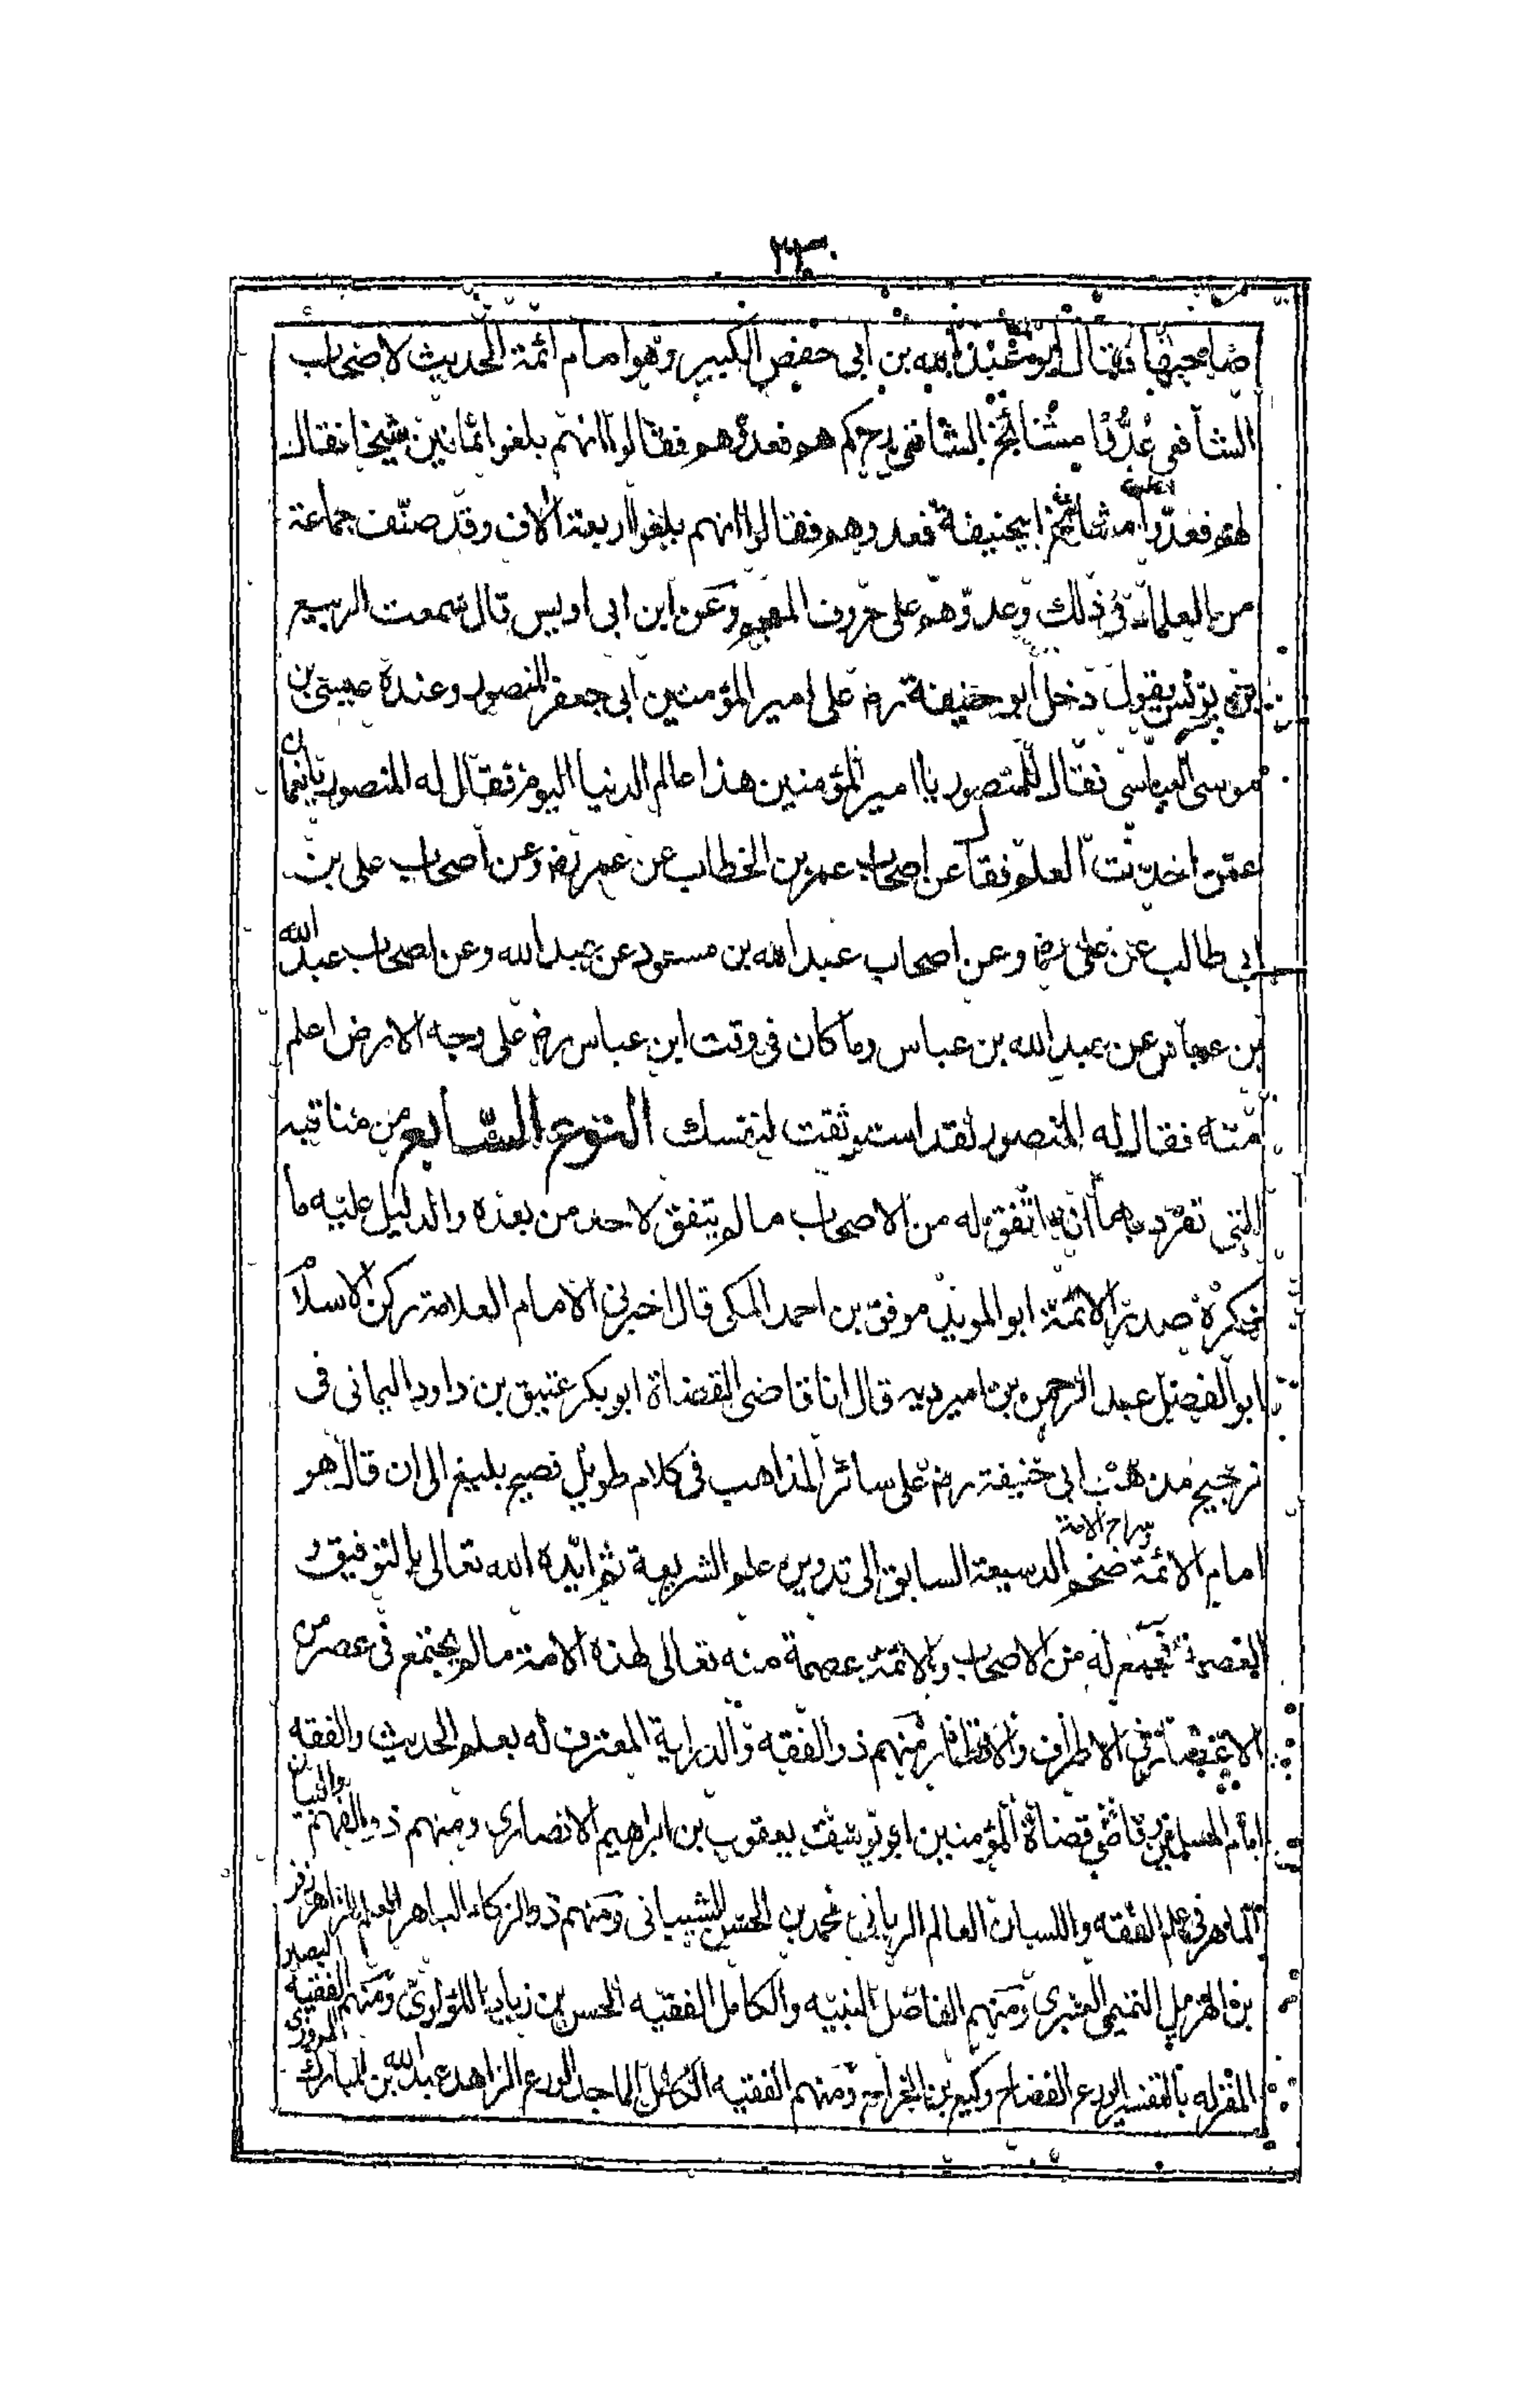 صاحبها فقال ابو عبد الله بن ابى حفص الكبير وهو امام ائمة الحديث لاصحاب
الشافعى عدّوا مشائخ الشافعى رح كم هم فعدوهم فقالوا انهم بلغوا ثمانين شيخا فقال
لهم فعدّوا مشائخ ابيحنيفة فعدوهم فقالوا انهم بلغوا اربعة الاف وقد صنّف جماعة
من العلماء فى ذلك وعدوّهم على حروف المعجم وعن ابن ابى اويس قال سمعت الربيع
بن يونس يقول دخل ابو حنيفة رض على امير المؤمنين ابى جعفر المنصور وعنده عيسى بن
موسى العباسى فقال للمنصور يا امير المؤمنين هذا عالم الدنيا اليوم فقال له المنصور يا نعمان
عمّن اخذت العلم فقال عن اصحاب عمر بن الخطاب عن عمر رض وعن اصحاب على بن
ابى طالب عن على رض وعن اصحاب عبد الله بن مسعود عن عبد الله وعن اصحاب عبد الله
بن عباس عن عبد الله بن عباس وما كان فى وقت ابن عباس رض على وجه الارض اعلم
منه فقال له المنصور لقد استوثقت لنفسك النوع السابع من مناقبه
التى تفرّد بها انه اتفق له من الاصحاب ما لم يتفق لاحد من بعده والدليل عليه ما
ذكره صدر الائمة ابو المويد موفق بن احمد المكى قال اخبرنى الامام العلامة ركن الاسلام
ابو الفضل عبد الرحمن بن اميرويه قال انا قاضى القضاة ابو بكر عتيق بن داود اليمانى فى
ترجيح مذهب ابى حنيفة رض على سائر المذاهب فى كلام طويل فصيح بليغ الى ان قال هو
امام الائمة سراج الامة ضخم الدسيعة السابق الى تدوين علم الشريعة ثم ايّده الله تعالى بالتوفيق و
العصمة فجمع له من الاصحاب والائمة عصمة منه تعالى لهذه الامة ما لم يجتمع فى عصر من
الاعصار فى الاطراف والاقطار منهم ذو الفقه والدراية المعترف له بعلم الحديث والفقه
امام المسلمين وقاضى قضاة المؤمنين ابو يوسف يعقوب بن ابراهيم الانصارى ومنهم ذو الفهم والبيان
الماهر فى علم الفقه واللسان العالم الربانى محمد بن الحسن الشيبانى ومنهم ذو الزكاء الباهر المعلم الزاهر زفر
بن الهزيل التميمى العنبرى ومنهم الفاضل النبيه والكامل الفقيه الحسن بن زياد اللؤلوى ومنهم الفقيه البصير
المقر له بالتفسير الورع الفضاح وكيع بن الجراح ومنهم الفقيه الكامل الماجد الورع الزاهد عبد الله بن المبارك المروزى